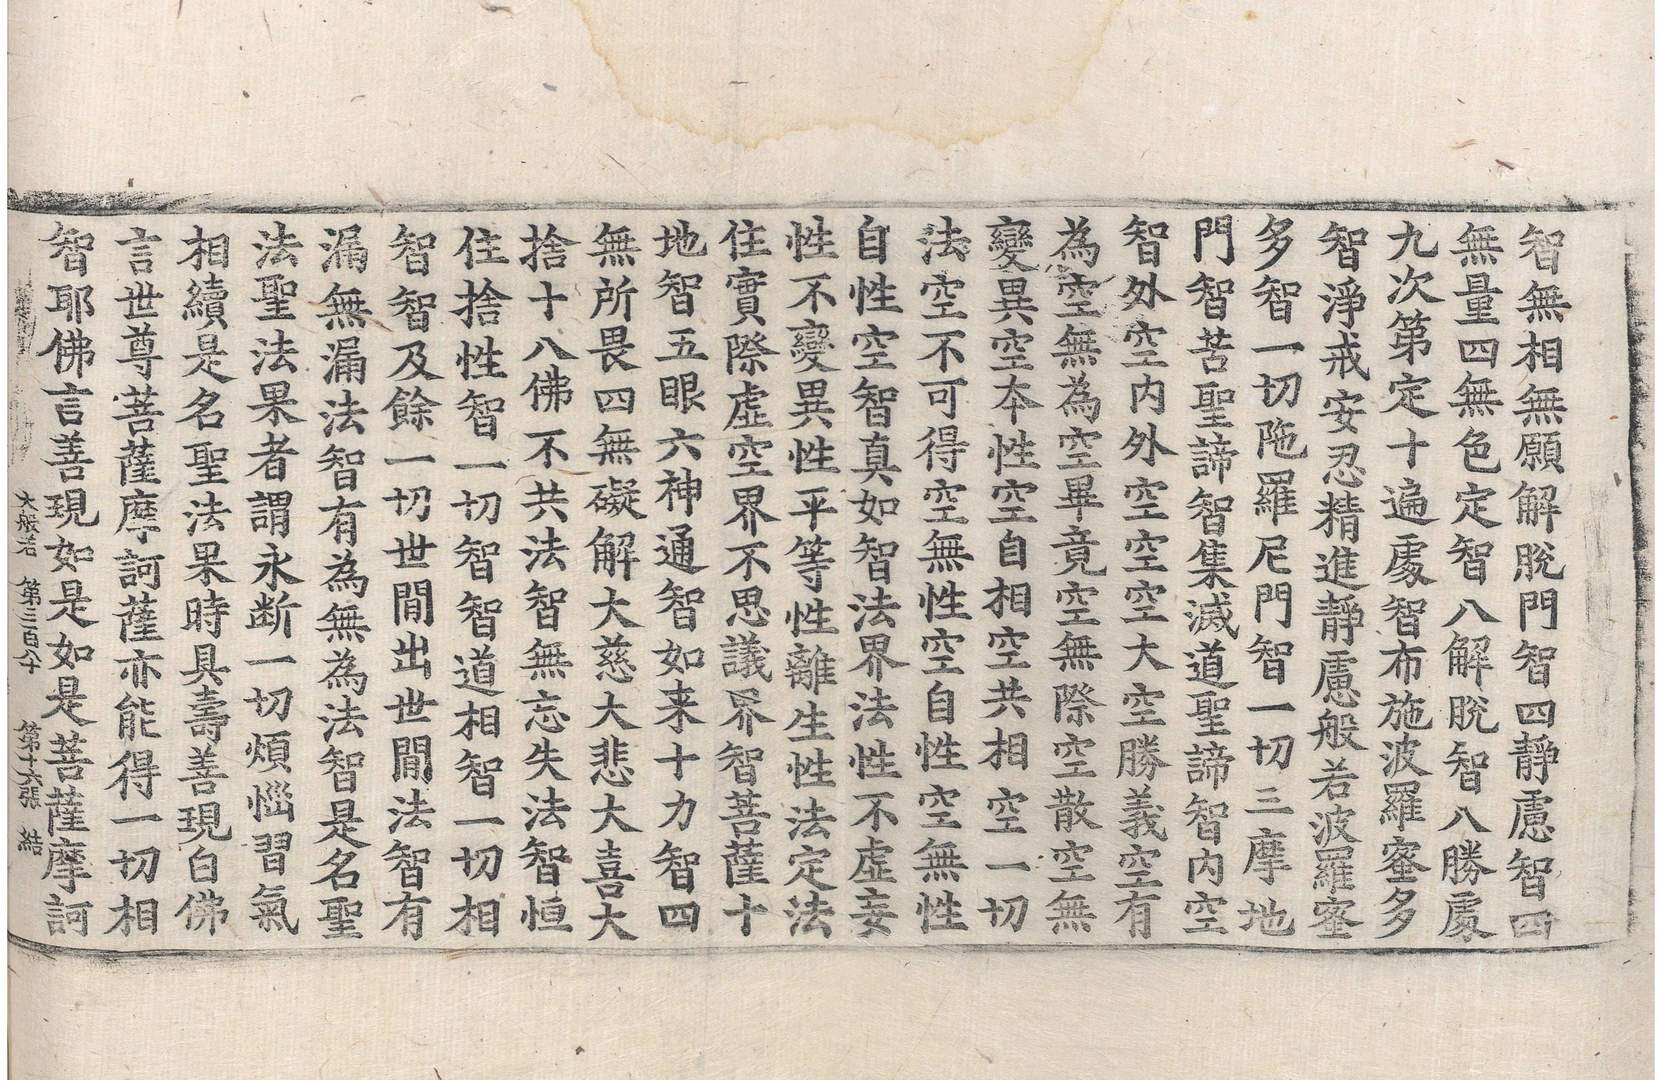 智無相無願解脫門智四靜慮智四
無量四無色定智八解脫智八勝處
九次第定十遍處智布施波羅蜜多
智淨戒安忍精進靜慮般若波羅蜜
多智一切陁羅尼門智一切三摩地
門智苦聖諦智集滅道聖諦智內空
智外空內外空空空大空勝義空有
為空無為空畢竟空無際空散空無
變異空本性空自相空共相空一切
法空不可得空無性空自性空無性
自性空智真如智法界法性不虛妄
性不變異性平等性離生性法定法
住實際虛空界不思議界智菩薩十
地智五眼六神通智如来十力智四
無所畏四無礙解大慈大悲大喜大
捨十八佛不共法智無忘失法智恒
住捨性智一切智智道相智一切相
智智及餘一切世間出世間法智有
漏無漏法智有為無為法智是名聖
法聖法果者謂永断一切煩惱習氣
相續是名聖法果時具壽善現白佛
言世尊菩薩摩訶薩亦能得一切相
智耶佛言善現如是如是菩薩摩訶
大般若 第三百八十 第十六張 結